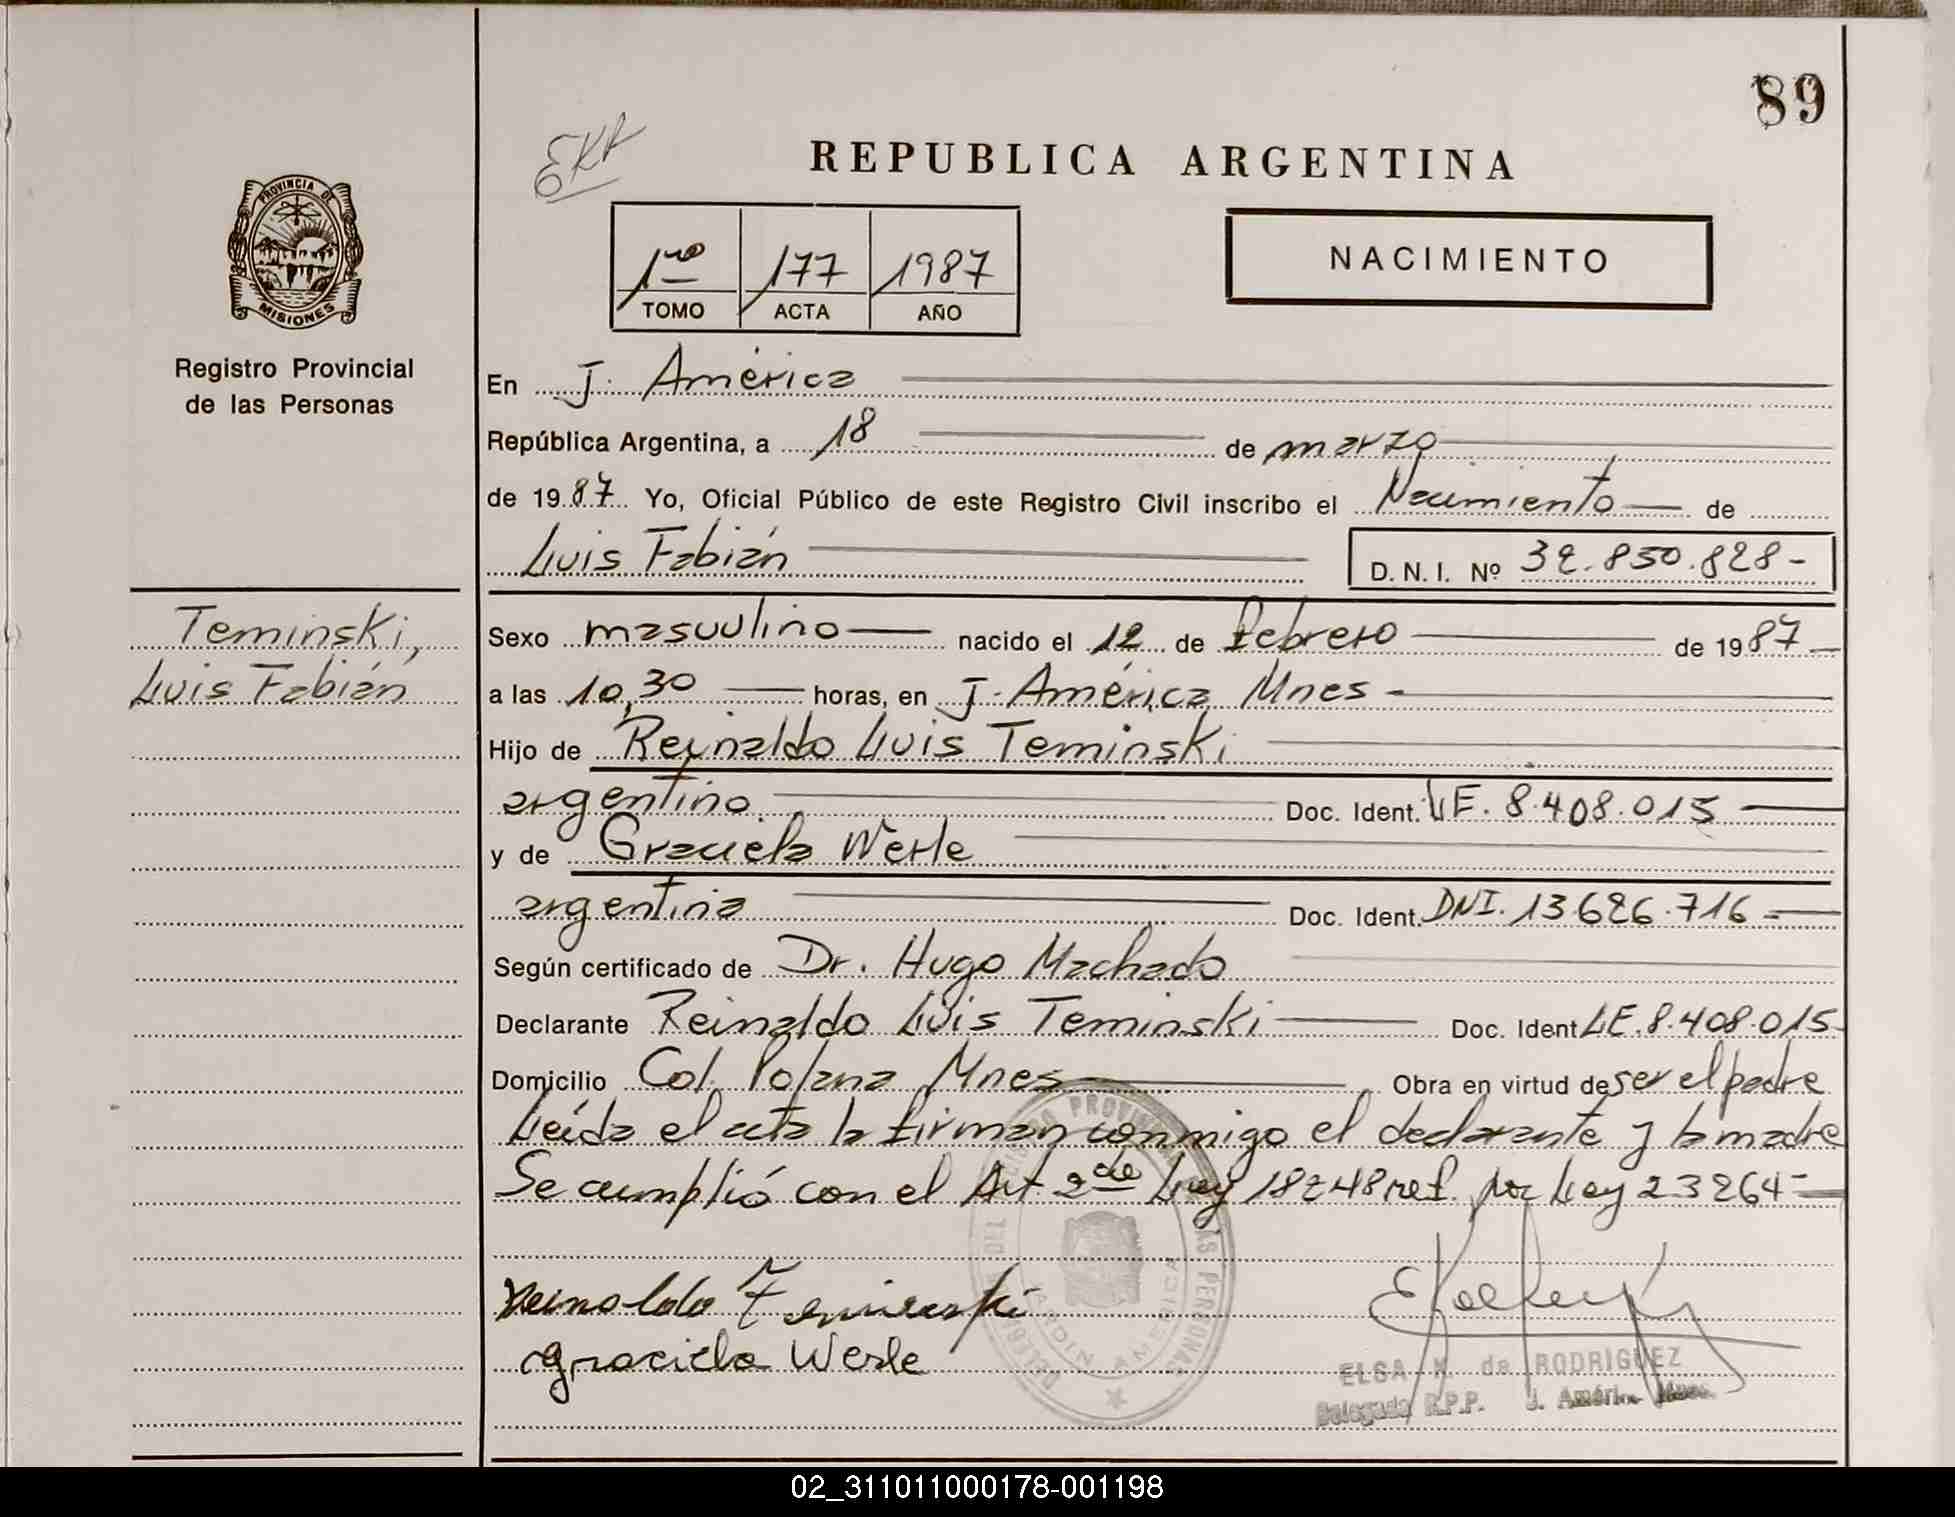 89
EKR
REPUBLICA ARGENTINA
PROVINCIA DE
MISIONES
1ro 177 1987
TOMO ACTA AÑO
NACIMIENTO
Registro Provincial
de las Personas
En J. América
República Argentina, a 18 de marzo
de 1987 Yo, Oficial Público de este Registro Civil inscribo el Nacimiento de
Luis Fabián D. N. I. Nº 32.850.828-
Teminski,
Luis Fabián
Sexo masculino nacido el 12 de febrero de 1987
a las 10,30 horas, en J. América Mnes -
Hijo de Reinaldo Luis Teminski
argentino Doc. Ident. LE. 8.408.015
y de Graciela Werle
argentina Doc. Ident. DNI. 13.626.716
Según certificado de Dr. Hugo Machado
Declarante Reinaldo Luis Teminski Doc. Ident LE. 8.408.015
Domicilio Col. Polana Mnes Obra en virtud de ser el padre
Leída el acta la firman conmigo el declarante y la madre
Se cumplió con el Art 2do Ley 18248 ref. por Ley 23264-
Reinaldo Teminski
Graciela Werle
JARDIN AMERICA
ELSA K. de RODRIGUEZ
Delegada R.P.P. J. América Mnes.
02_311011000178-001198